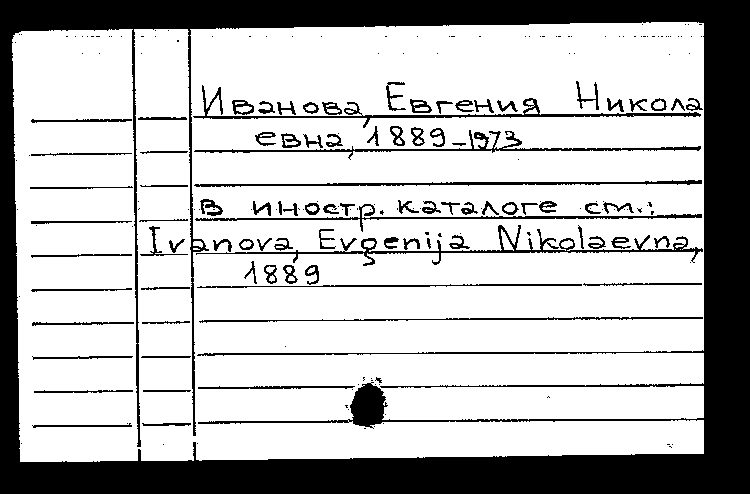 Иванова, Евгения Никола
евна, 1889-1973
В иностр. каталоге см.:
Ivanova, Evgenija Nikolaevna,
1889